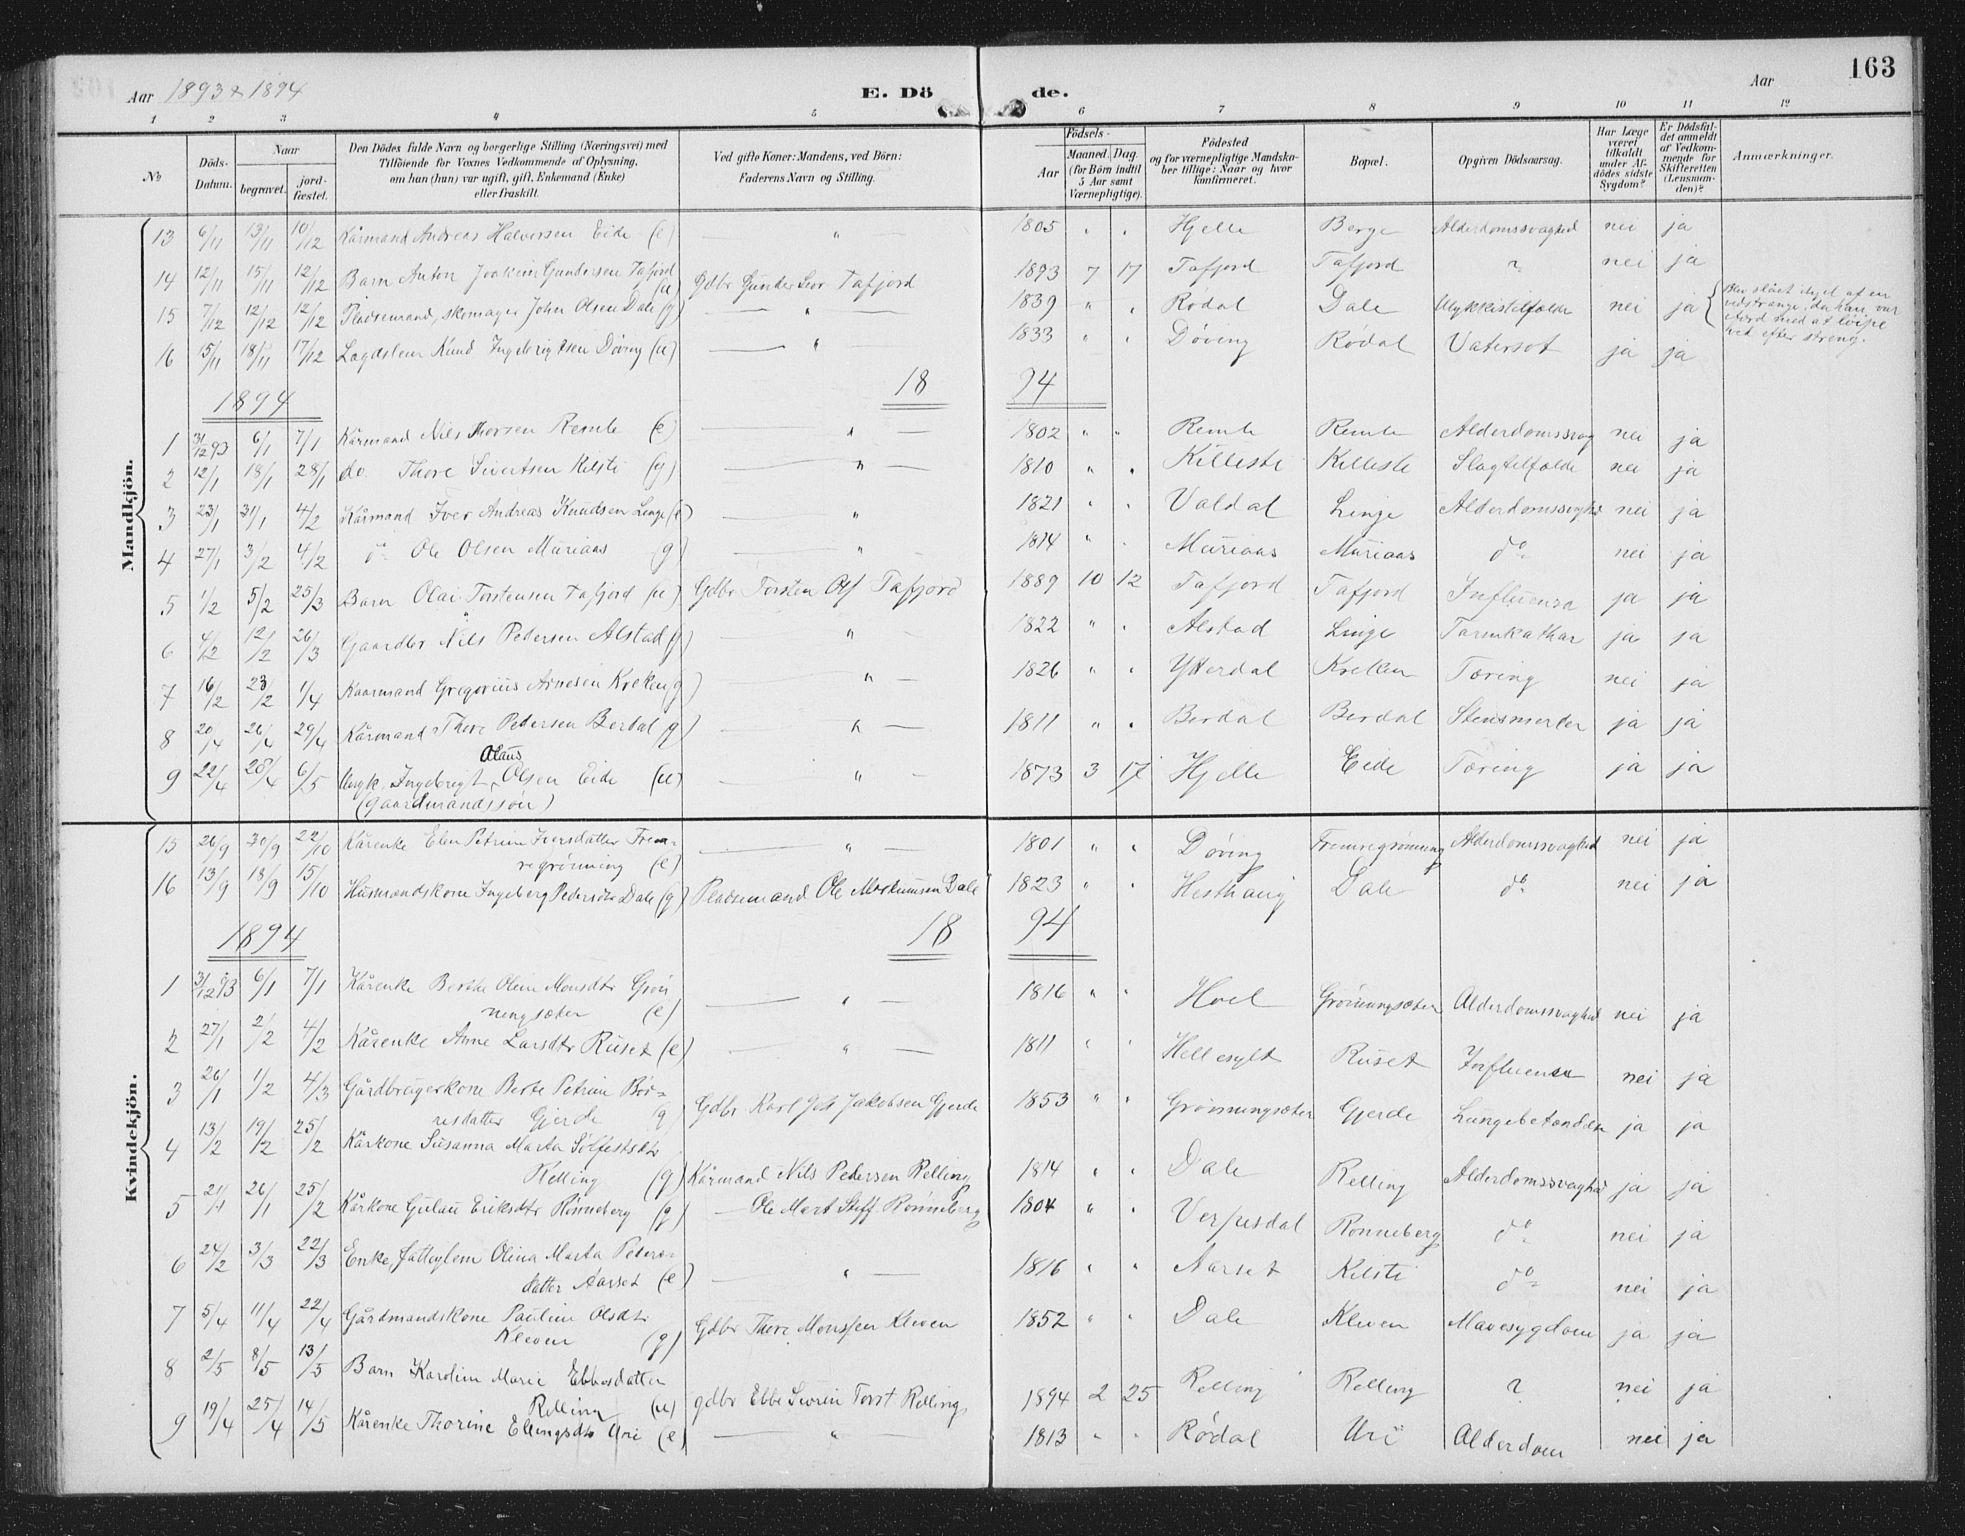 163
Aar 1893 & 1894 E. Dö de. Aar
1 2 3 4 5 6 7 8 9 10 11 12
№ Döds-Datum. Naar begravet. jord-fæstet. Den Dödes fulde Navn og borgerlige Stilling (Næringsvei) med Tilföiende for Voxnes Vedkommende af Oplysning, om han (hun) var ugift, gift, Enkemand (Enke) eller fraskilt. Ved gifte Koner: Mandens, ved Börn: Faderens Navn og Stilling. Födsels- Aar Maaned. Dag. (for Börn indtil 5 Aar samt Værnepligtige). Födested og for værnepligtige Mandskaber tillige: Naar og hvor konfirmeret. Bopæl. Opgiven Dödsaarsag. Har Læge været tilkaldt under Afdödes sidste Sygdom? Er Dödsfaldet anmeldt af Vedkommende for Skifteretten (Lensmanden)? Anmærkninger.
Mandkjön.
13 6/11 13/11 10/12 Kårmand Andreas Halversen Eide (e) — " — 1805 " " Hjelle Berge Alderdomssvaghed nei ja
14 12/11 15/11 12/12 Barn Anton Joakim Gundersen Tafjord (u) Gdbr Gunder Tafjord 1893 7 17 Tafjord Tafjord ? nei ja
15 7/12 12/12 12/12 Pladsemand, skomager John Olsen Dale (g) — " — 1839 " " Rødal Dale Ulykkestilfælde nei ja
16 15/11 18/11 17/12 Lægdslem Knud Ingebrigtsen Døving (u) — " — 1833 " " Døving Rødal Vatersot ja ja
1894 18 94
1 31/12 93 6/1 7/1 Kårmand Nils Thorsen Remle (e) — " — 1802 " " Remle Remle Alderdomssvag nei ja
2 12/1 18/1 28/1 do. Thore Sivertsen Kilsti (g) — " — 1810 " " Killesti Killesti Slagtilfælde nei ja
3 23/1 31/1 4/2 Kårmand Iver Andreas Knudsen Linge (e) — " 1821 " " Valdal Linge Alderdomssvaghd nei ja
4 27/1 3/2 4/2 do Ole Olsen Muriaas (g) — " — 1814 " " Muriaas Muriaas do nei ja
5 1/2 5/2 25/3 Barn Olai Torstensen Tafjord (u) Gdbr Torsten Ols Tafjord 1889 10 12 Tafjord Tafjord Influensa ja ja
6 4/2 12/2 26/3 Gaardbr Nils Pedersen Alstad (g) — " — 1822 " " Alstad Linge Tarmkathar ja ja
7 16/2 23/2 1/4 Kaarmand Gregorius Arnesen Kreken (g) — " — 1826 " " Ytterdal Krekken Tæring nei ja
8 20/4 26/4 29/4 Kårmand Thore Pedersen Berdal (g) — " — 1811 " " Berdal Berdal Stensmerter ja ja
9 22/4 28/4 6/5 Ungk. Ingebrigt Olaus Olsen Eide (u) — " — 1873 3 17 Hjelle Eide Tæring ja ja
(gaardmandssøn)
Kvindekjön.
15 26/9 30/9 22/10 Kårenke Elen Petrine Iversdatter Frem- — " — 1801 " " Døving Fremregrønning Alderdomssvaghed nei ja
regrønning (e)
16 13/9 18/9 15/10 Husmandskone Ingeborg Pedersdtr Dale (g) Pladsemand Ole Dale 1823 " " Hesthaug Dale do nei ja
1894 18 94
1 31/12 93 6/1 7/1 Kårenke Berthe Oline Monsdtr Grøn — " — 1816 " " Hoel Grønningsæter Alderdomssvaghed nei ja
ningsæter (e)
2 27/1 2/2 4/2 Kårenke Anne Larsdtr Ruset (e) — " — 1811 " " Hellesylt Ruset Influensa nei ja
3 26/1 1/2 4/3 Gårdbrugerkone Berte Petrine Bør- Gdbr Karl Joh Jakobsen Gjerde 1853 " " Grønningsæter Gjerde Lungebetændelse ja ja
resdatter Gjerde (g)
4 13/2 19/2 25/2 Kårkone Susanna Marta Sølfestsdtr
Relling (g) Kårmand Nils Pedersen Relling 1814 " " Dale Relling Alderdomssvaghed ja ja
5 21/1 26/1 25/2 Kårkone Gulau Eriksdtr Rønneberg (g) — Ole Mart Steff Rønneberg 1804 " " Verpesdal Rønneberg do nei ja
6 24/2 3/3 22/3 Enke, fattiglem Olina Marta Peders- — " — 1816 " " Aarset Kilsti do nei ja
datter Aarset (e)
7 5/4 11/4 22/4 Gårdmandskone Pauline Olsdtr Gdbr Thore Monssen Kleven 1852 " " Dale Kleven Mavesygdom ja ja
Kleven (g)
8 2/5 8/5 13/5 Barn Karoline Marie Ebbesdatter
Relling (u) gdbr Ebbe Torst Relling 1894 2 25 Relling Relling ? nei ja
9 19/4 25/4 14/5 Kårenke Thorine Ellingsdtr Uri (e) — " — 1813 " " Rødal Uri Alderdom nei ja